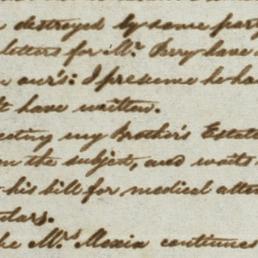 destroyed by some party
letters for Mr. Bery have
our's: I presume he ha
have written.
ecting my Brother's Estate
on the subject, and wants
his bill for medical atten
lars.
he Mrs. Mexia continues